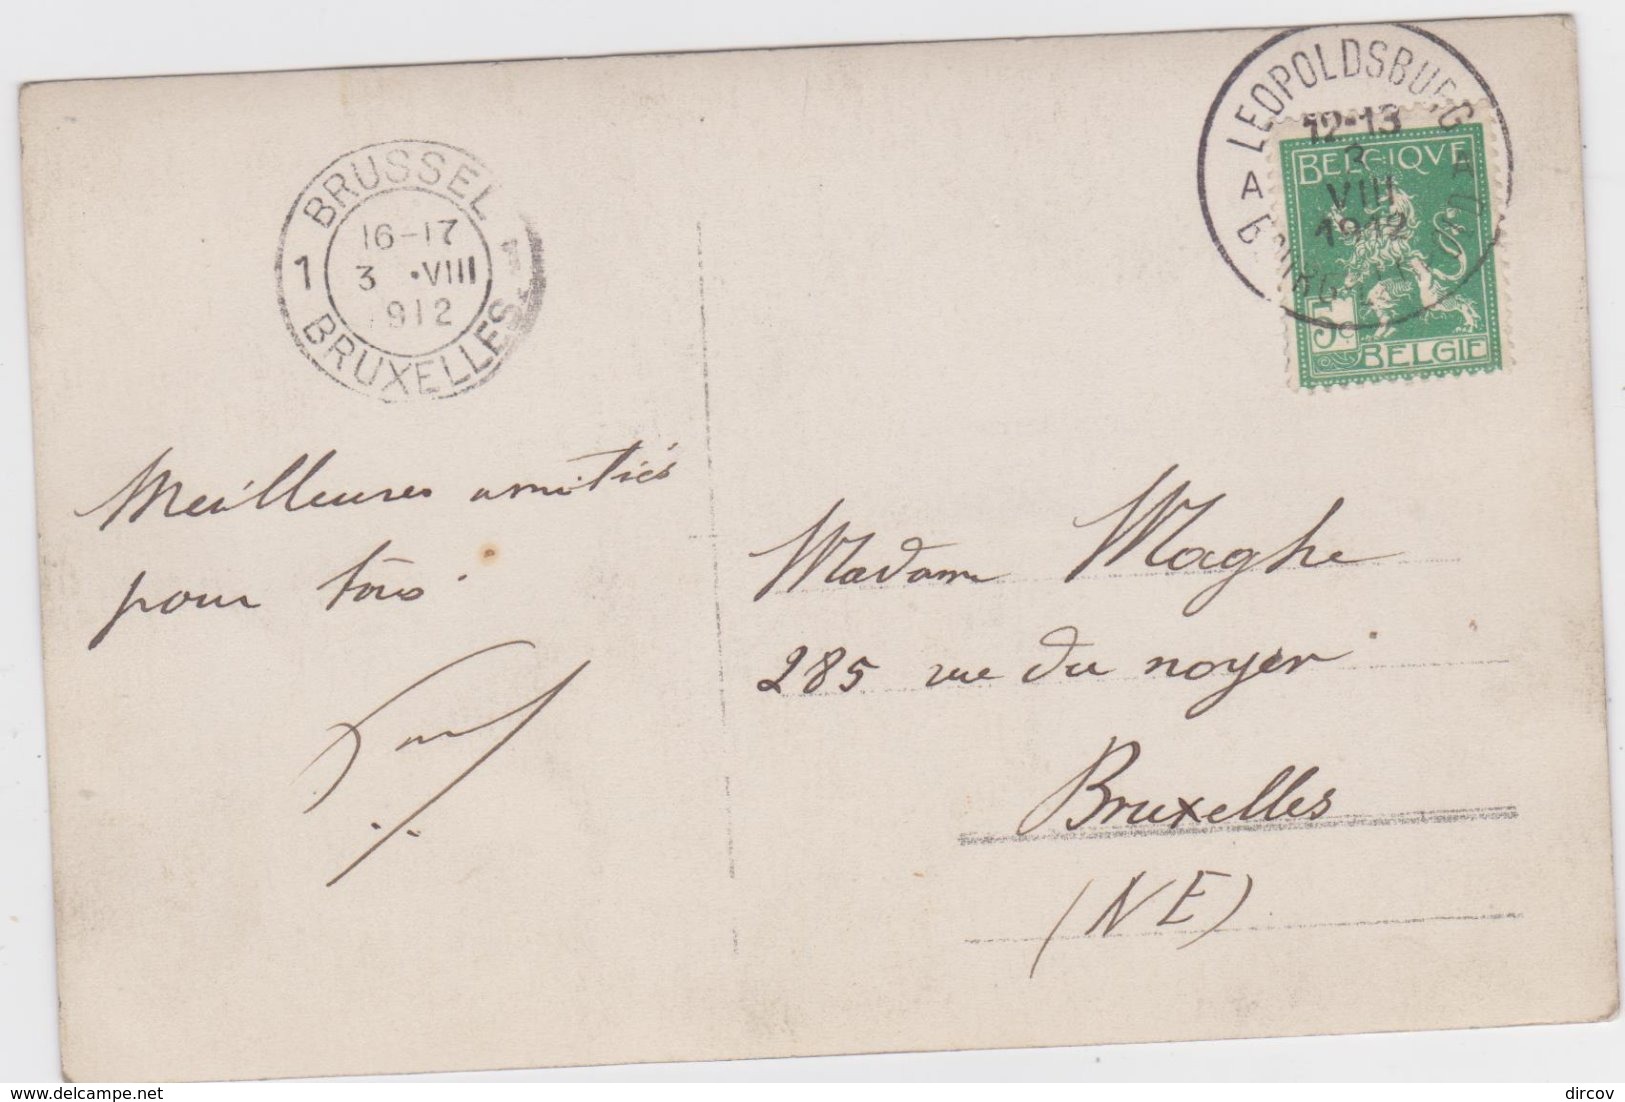 BRUSSEL
16-17
3 .VIII
1912
1
BRUXELLES
LEOPOLDSBURG
12-13
3
VIII
1912
A A
BELGIQVE
5c
BELGIE
Meilleures amitiés
pour tous.
Madame Maghe
285 rue du noyer
Bruxelles
(NE)
www.delcampe.net
dircov